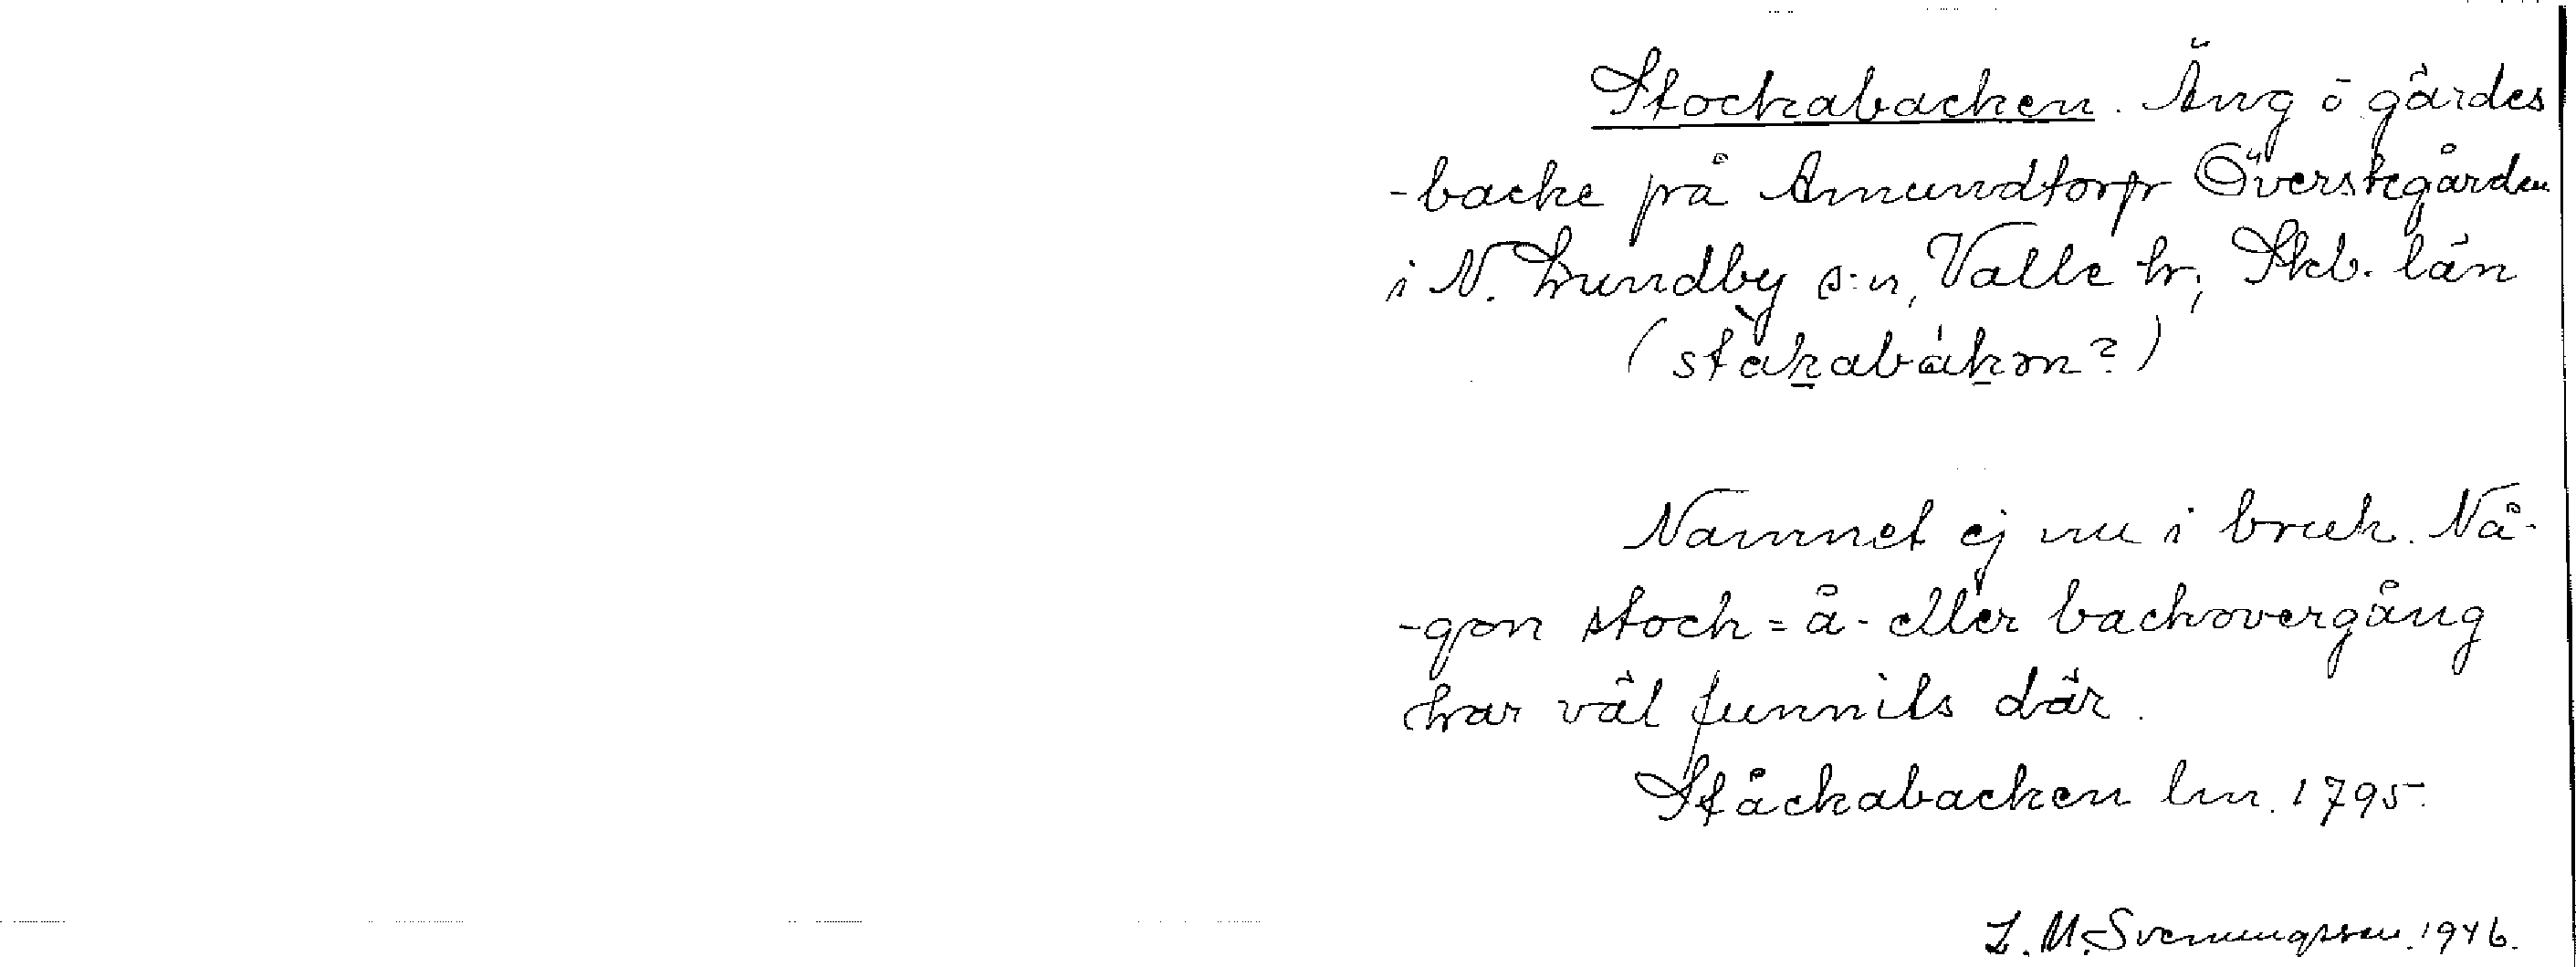 Stockabacken. Äng o gärdes
-backe på Amundtorp Överstegården
i N. Lundby s:n, Valle hr; Skb. län
(ståkabákən?)
Namnet ej nu i bruk. Nå-
-gon stock = å- eller bäckövergång
har väl funnits där.
Ståckabacken lm. 1795.
L. M. Svenungsson. 1946.